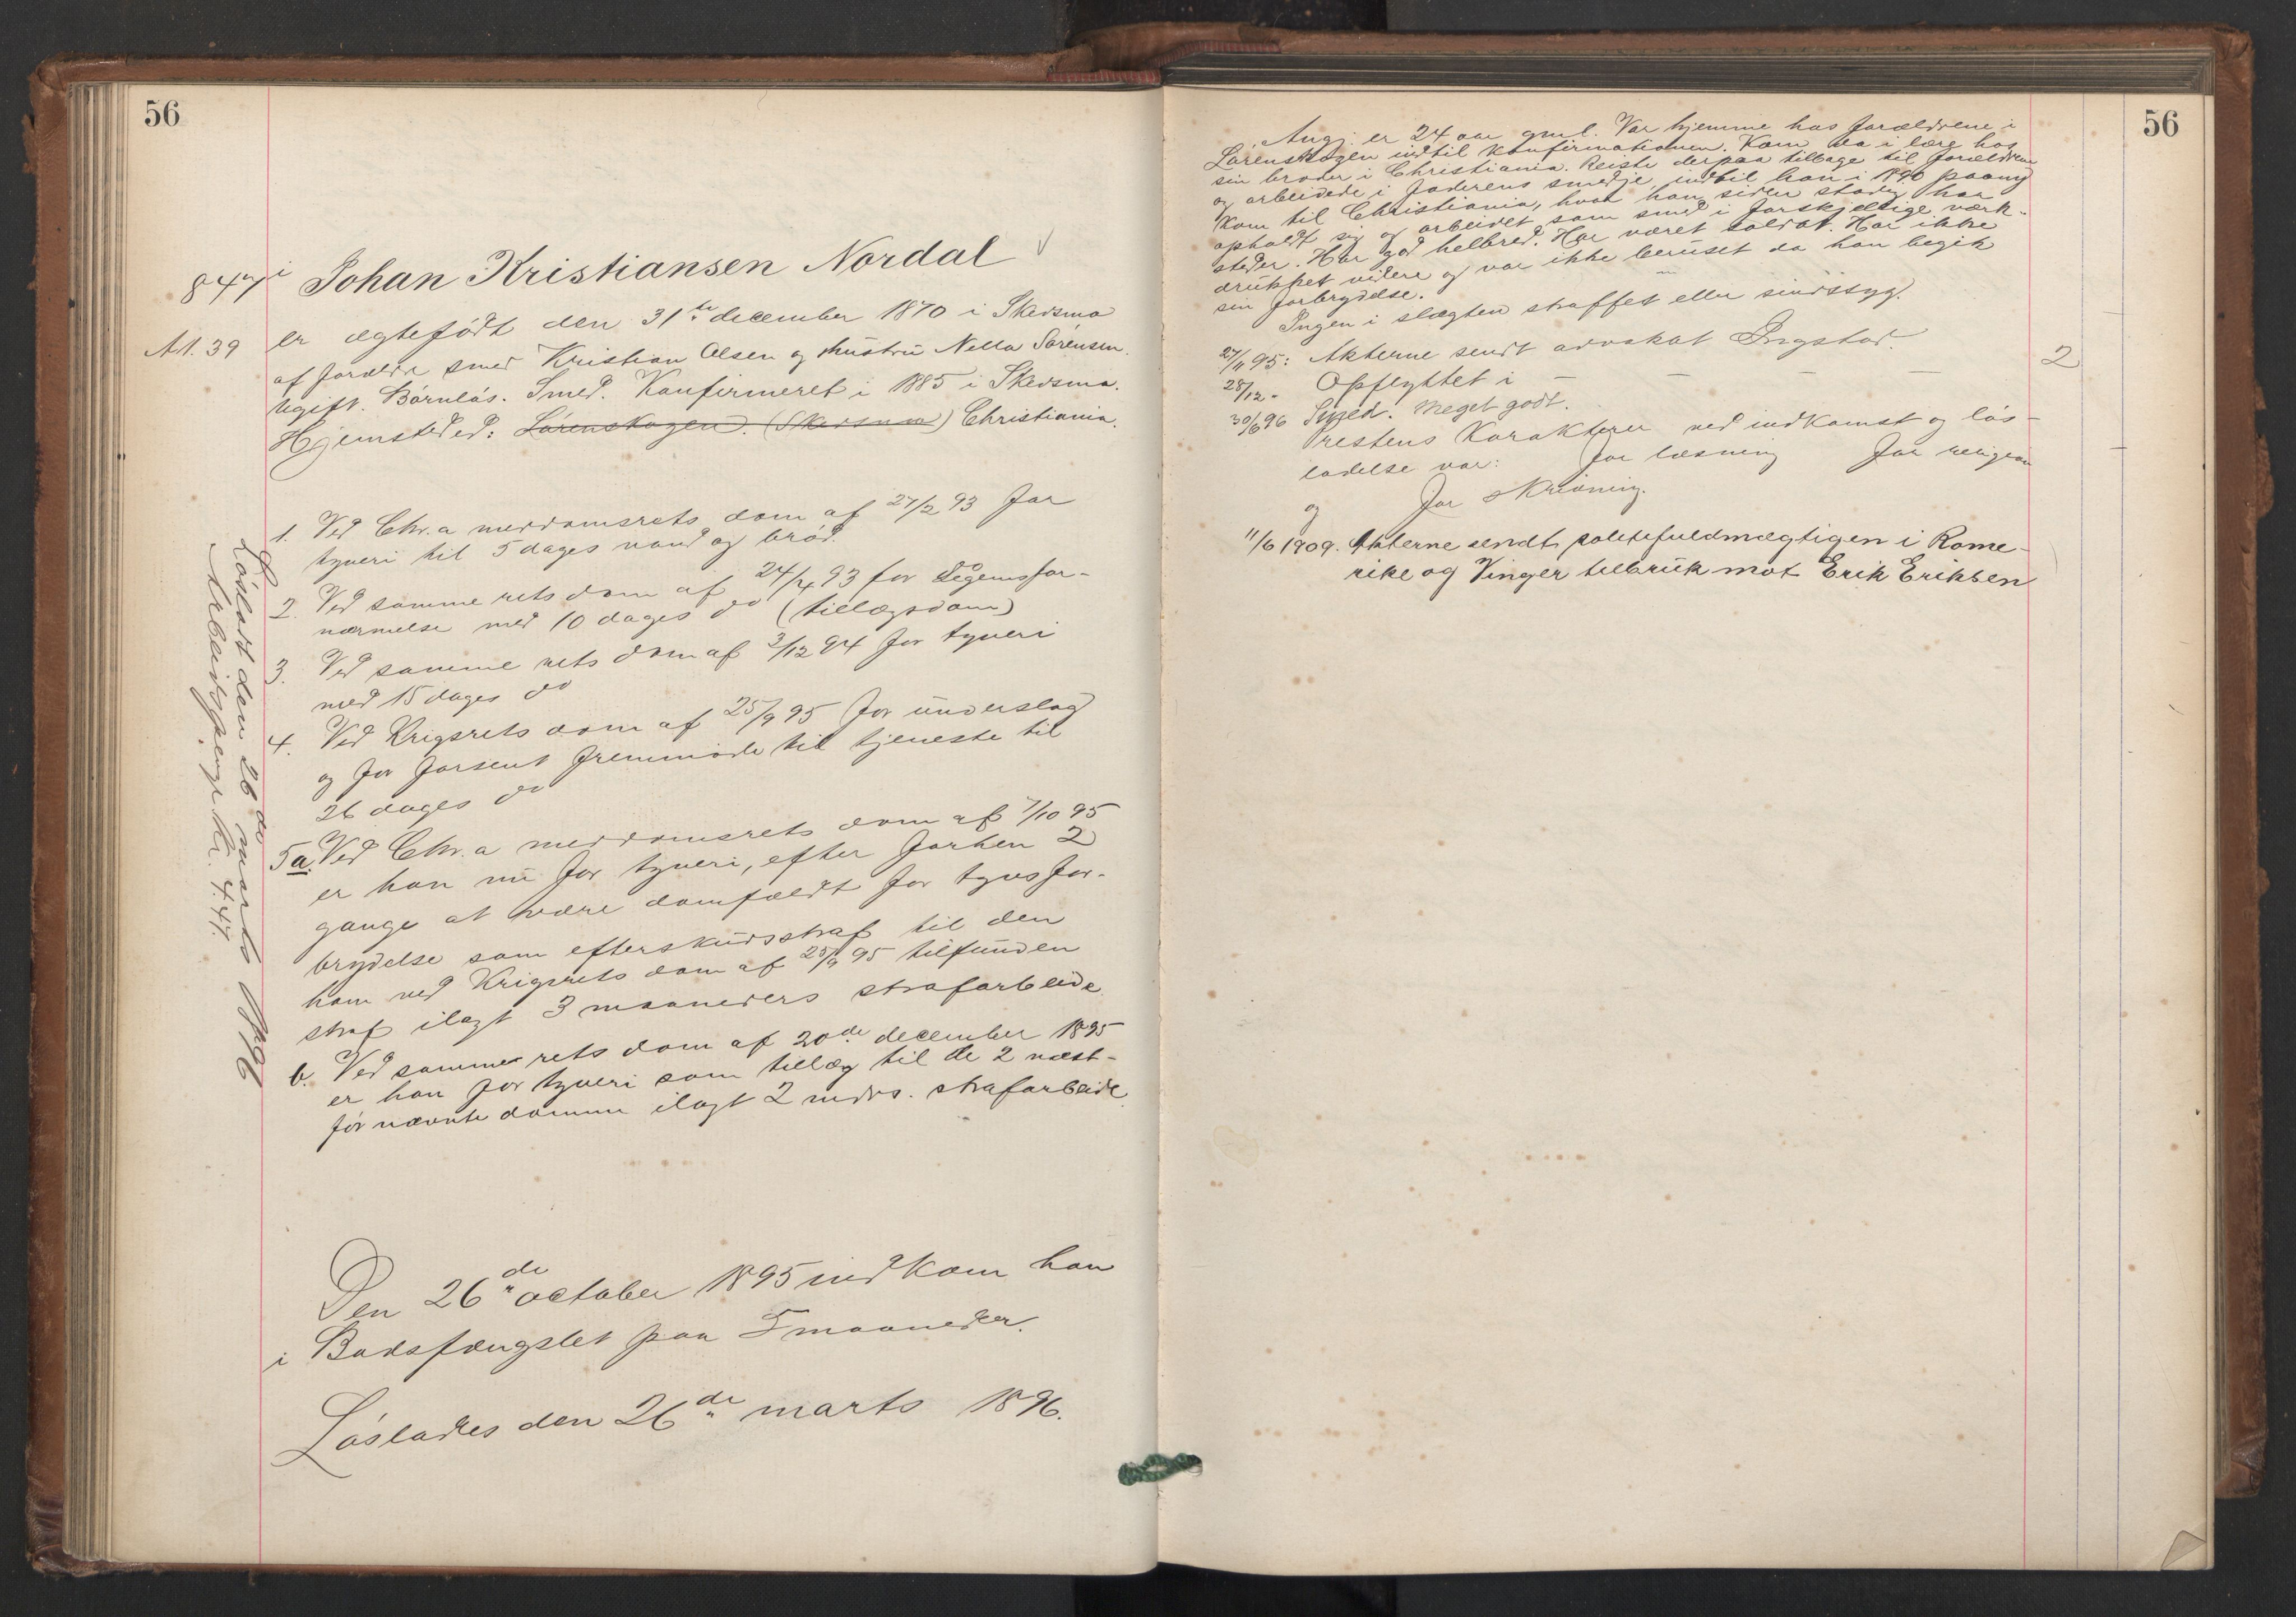 56
847i Johan Kristiansen Nordal
Art. 39 er ægtefødt den 31te december 1870 i Skedsmo
af forældre smed Kristian Olsen og hustru Nella Sørensen.
Ugift. Børnløs. Smed. Konfirmeret i 1885 i Skedsmo.
Hjemsted ed: Lørenskogen. (Skedsmo) Christiania.
1. Ved Chr.a meddomsrets dom af 27/2 93 for
tyveri til 5 dages vand og brød.
2. Ved samme rets dom af 24/4 93 for Legemsfor-
nærmelse med 10 dages do (tillægsdom)
3. Ved samme rets dom af 3/12 94 for tyveri
med 15 dages do
4. Ved Krigsrets dom af 25/9 95 for underslag
og for forsent fremmøde til tjeneste til
26 dages do
5a. Ved Chr.a meddomsrets dom af 7/10 95
er han nu for tyveri, efter forhen 2
gange at være domfældt for tyvsfor-
brydelse som efterskudsstraf til den
ham ved Krigsrets dom af 25/9 95 tilfunden
straf ilagt 3 maaneders strafarbeide.
b. Ved samme rets dom af 20de december 1895
er han for tyveri som tillæg til de 2 næst-
før nævnte domme ilagt 2 mdrs. strafarbeide.
Den 26de october 1895 indkom han
i Bodsfængslet paa 5 maaneder.
Løslades den 26de marts 1896.
Løsladt den 26de marts 1896
Arbeidspenge kr. 4.47.
56
Angj. er 24 aar gml. Var hjemme hos forældrene i
Lørenskogen indtil konfirmationen. Kom da i lære hos
sin broder i Christiania. Reiste derpaa tilbage til forældrene
og arbeidede i faderens smedje indtil han i 1890 paany
kom til Christiania, hvor han siden stadig har
opholdt sig og arbeidet som smed i forskjellige værk-
steder. Har god helbred. Har været soldat. Har ikke
drukket videre og var ikke beruset da han begik
sin forbrydelse.
Ingen i slægten straffet eller sindssyg.
27/11 95: Akterne sendt advokat Ingstad.
28/12 - Opflyttet i — — — 2
30/6 96 Smed. Meget godt.
Prestens Karakterer ved indkomst og løs-
ladelse var: for læsning for religion
og for skrivning.
11/6 1909. Akterne sendt politifuldmægtigen i Rome-
rike og Vinger tilbruk mot Erik Eriksen